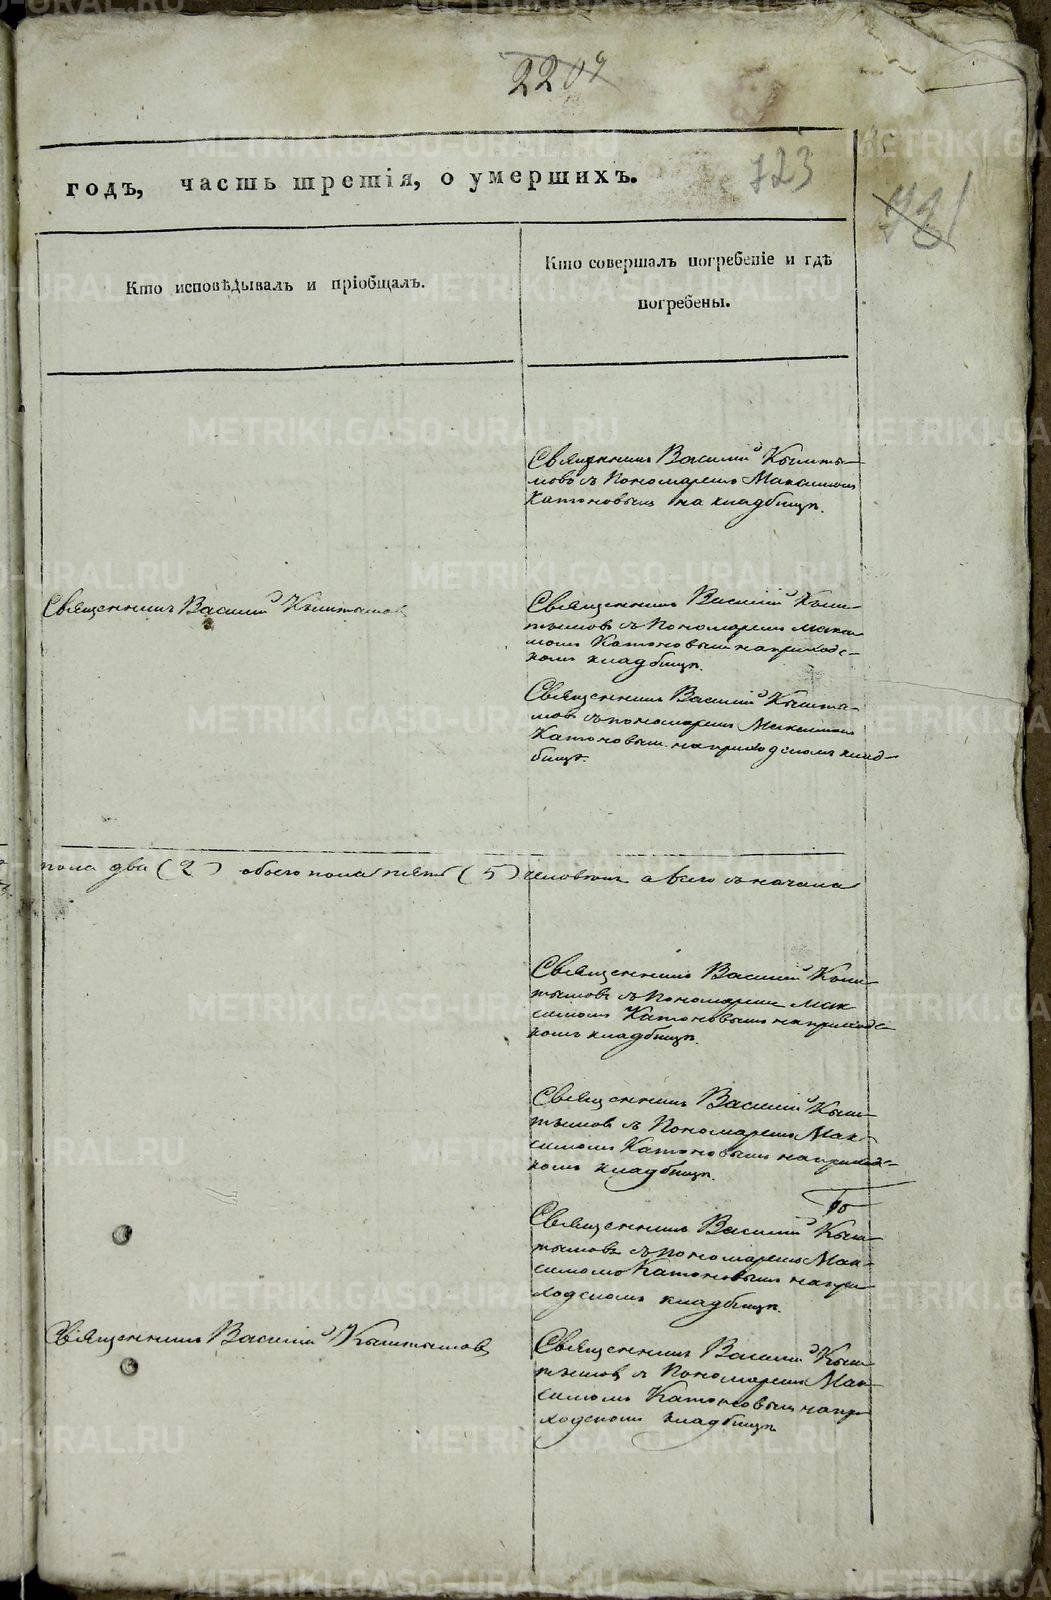 2209
годъ, часть третія, о умершихъ.
723
Кто исповѣдывалъ и пріобщалъ.
Кто совершалъ погребеніе и гдѣ
погребены.
Священникъ Василій Кышты-
мовъ съ Пономаремъ Максимомъ
Катоновымъ на кладбищѣ.
Священникъ Василій Кыштымов
Священникъ Василій Кыш-
тымовъ съ Пономаремъ Макси
момъ Катоновымъ на приходс-
комъ кладбищѣ.
Священникъ Василій Кышты-
мовъ съ пономаремъ Максимомъ
Катоновымъ на приходскомъ клад-
бищѣ.
пола два (2) обоего пола пять (5) человѣкъ а всего съ начала
Священникъ Василій Кыш-
тымовъ съ Пономаремъ Мак
симомъ Катоновымъ на приходс-
комъ кладбищѣ.
Священникъ Василій Кыш-
тымовъ съ Пономаремъ Мак-
симомъ Катоновымъ на приходс-
комъ кладбищѣ.
Священникъ Василій Кыш-
тымовъ съ Пономаремъ Мак-
симомъ Катоновымъ на при
ходскомъ кладбищѣ.
Священникъ Василій Кыштымовъ
Священникъ Василій Кыш-
тымовъ съ Пономаремъ Мак-
симомъ Катоновымъ на при
ходскомъ кладбищѣ
METRIKI.GASO-URAL.RU